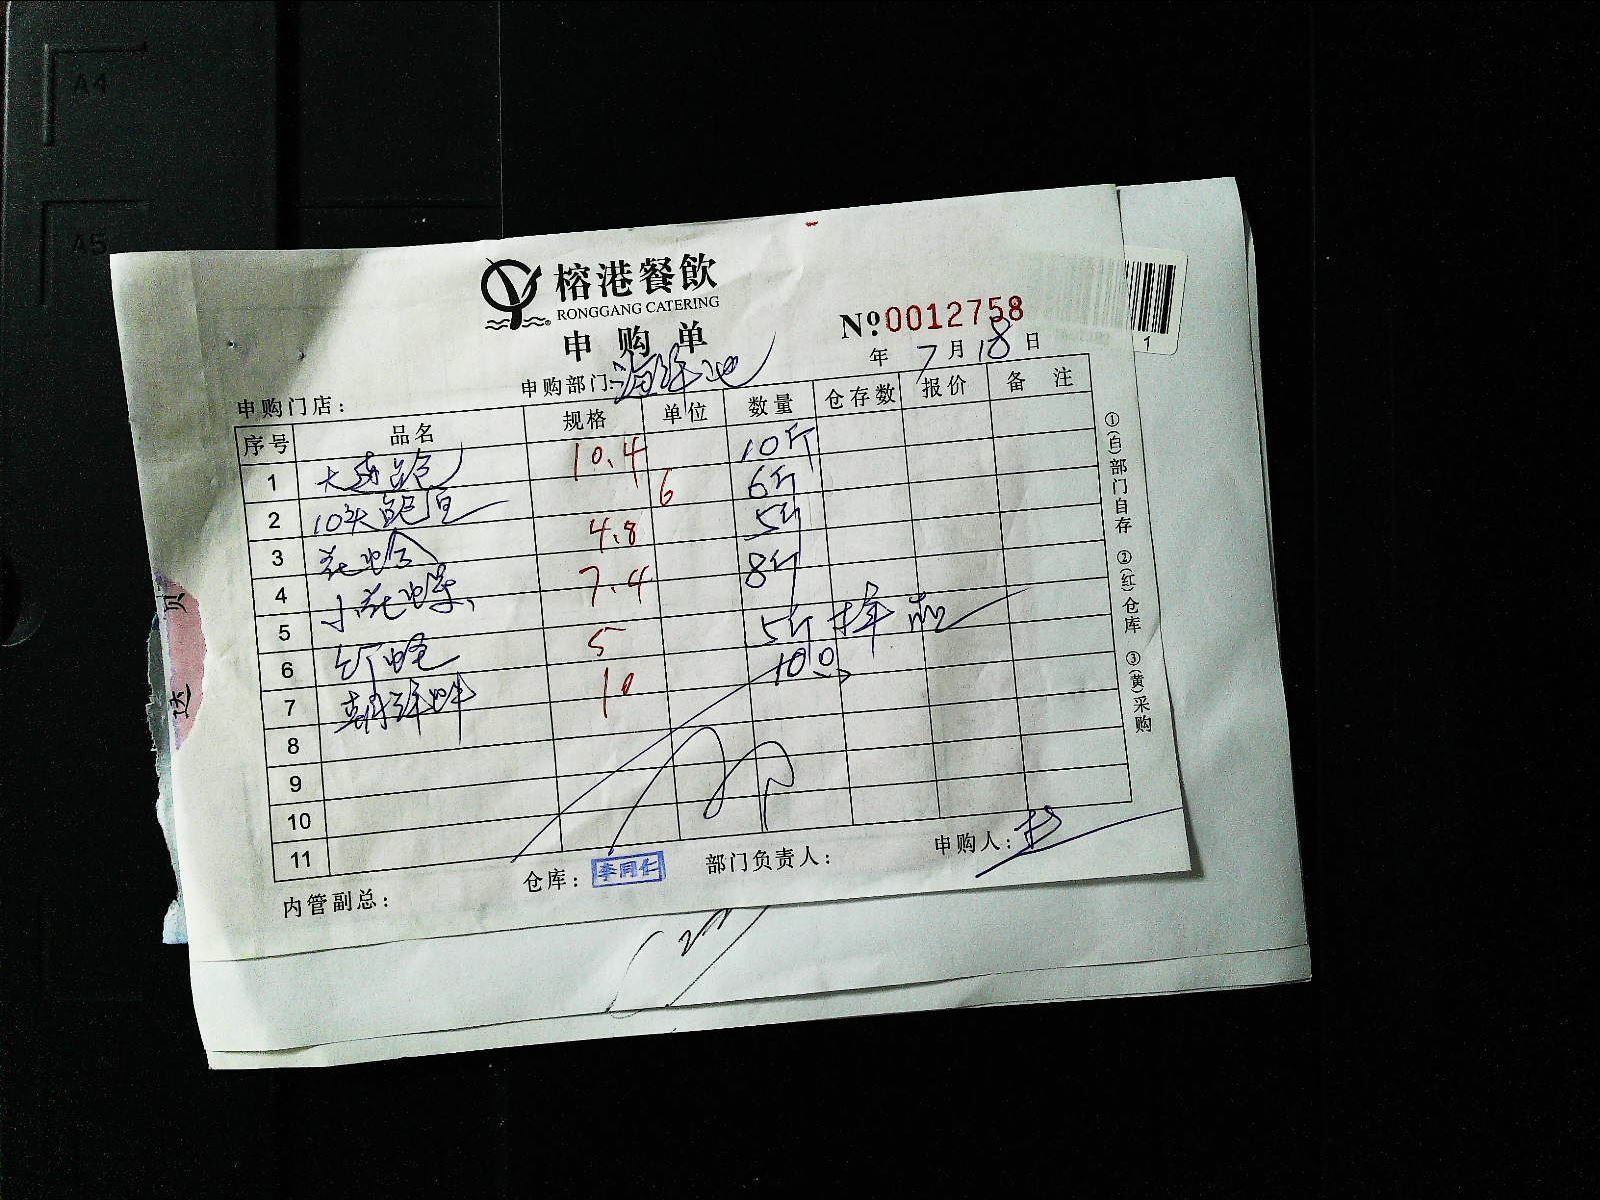 A4
A5
榕港餐飲
RONGGANG CATERING
申购单
Nº.0012758
年 7月18日
申购门店：
申购部门：海鲜池
序号 品名 规格 单位 数量 仓存数 报价 备注
1 10.4 10斤
2 10头鲍 6 6斤
3 花蛤 4.8 5斤
4 小花螺 7.4 8斤
5
6 竹蛏 5 5斤
7 10 10只
8
9
10
11
内管副总：
仓库：李同仁
部门负责人：
申购人：
①(白)部门自存 ②(红)仓库 ③(黄)采购
1
贝
达